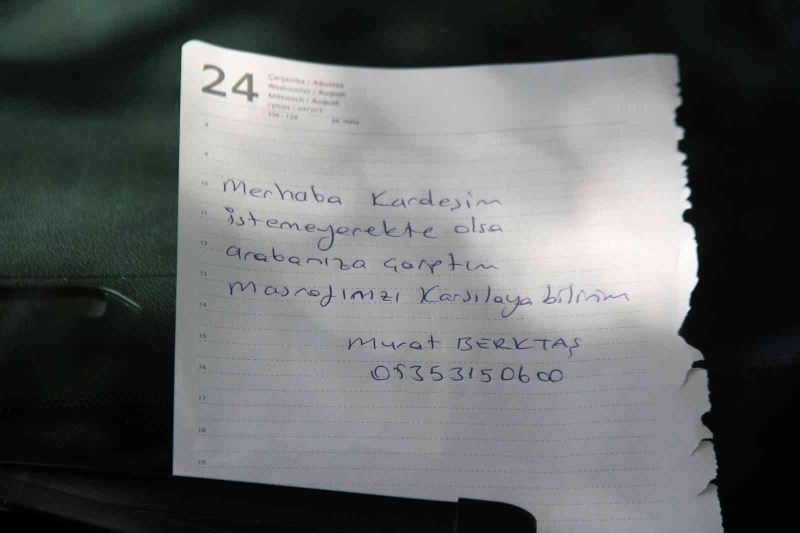 24
Çarşamba / Ağustos
Wednesday / August
Mittwoch / August
среда / август
8
9
10
11
12
13
14
15
16
17
18
19
Merhaba Kardeşim
istemeyerekte olsa
arabanıza çarptım
masrafınızı Karşılaya bilirim
Murat BERKTAŞ
05353150600